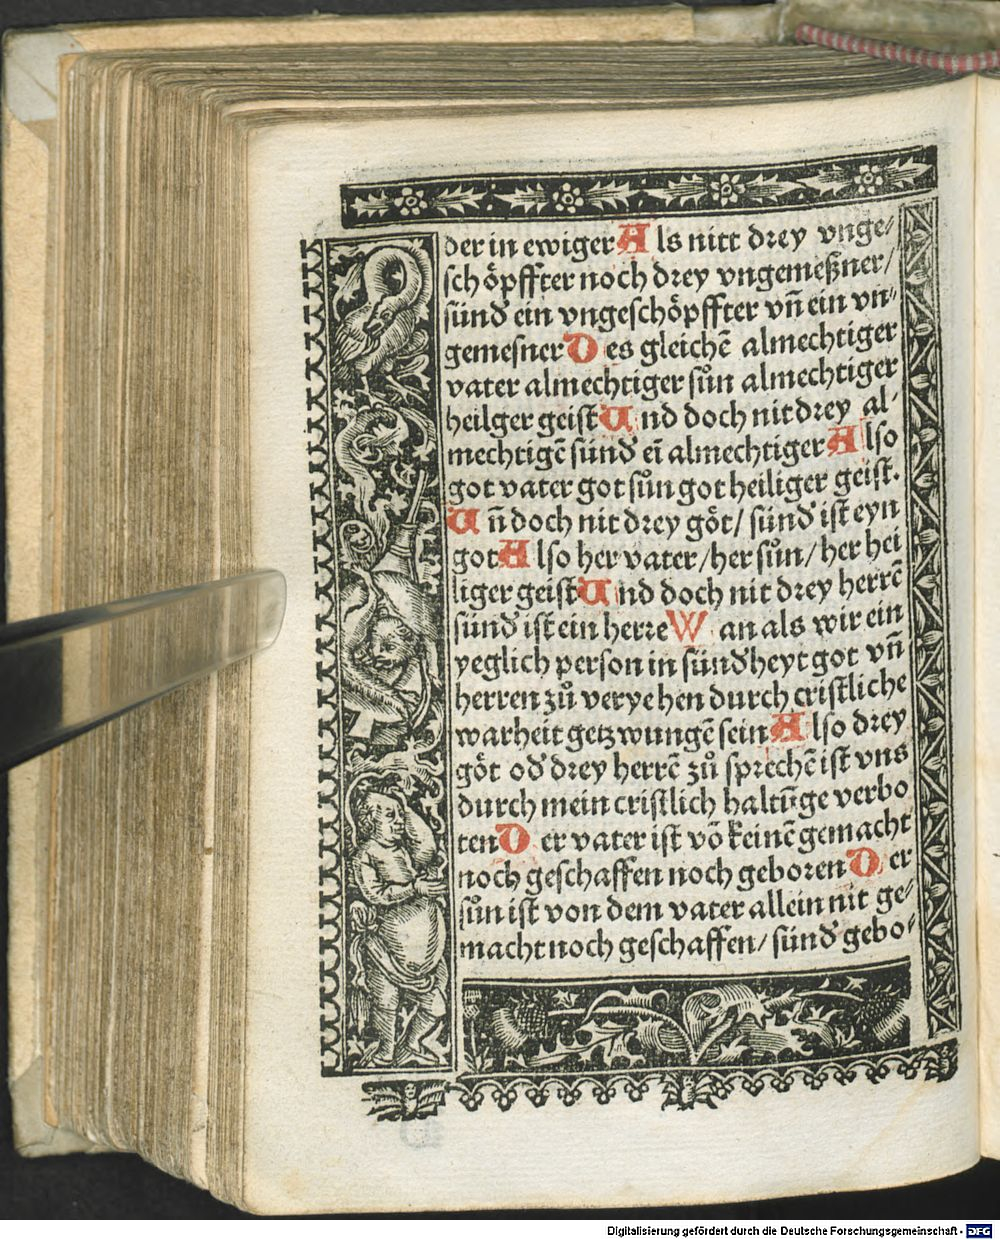 der in ewiger Als nitt drey vnge/
schöpffter noch drey vngemeßner/
sünd̕ ein vngeschöpffter vn̄ ein vn⸗
gemesner Des gleichē almechtiger
vater almechtiger sůn almechtiger
heilger geist Und doch nit drey al⸗
mechtigē sünd̕ eī almechtiger Also
got vater got sůn got heiliger geist.
Un̄ doch nit drey göt/ sünd̕ ist eyn
got Also her vater/ her sůn/ her hei
liger geist Und doch nit drey herrē
sünd̕ ist ein herre Wan als wir ein
yeglich person in sünd̕heyt got vn̄
herren zů veryehen durch cristliche
warheit getzwungē sein Also drey
göt od̕ drey herrē zů sprechē ist vns
durch mein cristlich haltūge verbo
ten Der vater ist vō keinē gemacht
noch geschaffen noch geboren Der
sůn ist von dem vater allein nit ge⸗
macht noch geschaffen/ sünd̕ gebo⸗
Digitalisierung gefördert durch die Deutsche Forschungsgemeinschaft - DFG